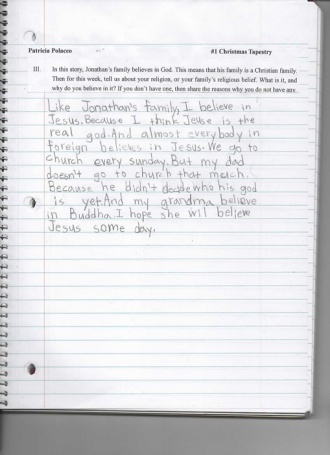 Patricia Polacco
#1 Christmas Tapestry
III. In this story, Jonathan's family believes in God. This means that his family is a Christian family.
Then for this week, tell us about your religion, or your family's religious belief. What is it, and
why do you believe in it? If you don't have one, then share the reasons why you do not have any.
Like Jonathan's family, I believe in
Jesus. Because I think Jeuse is the
real god. And almost everybody in
foreign believes in Jesus. We go to
church every sunday. But my dad
doesn't go to church that mech.
Because he didn't decide who his god
is yet. And my grandma believe
in Buddha. I hope she wil believe
Jesus some day.